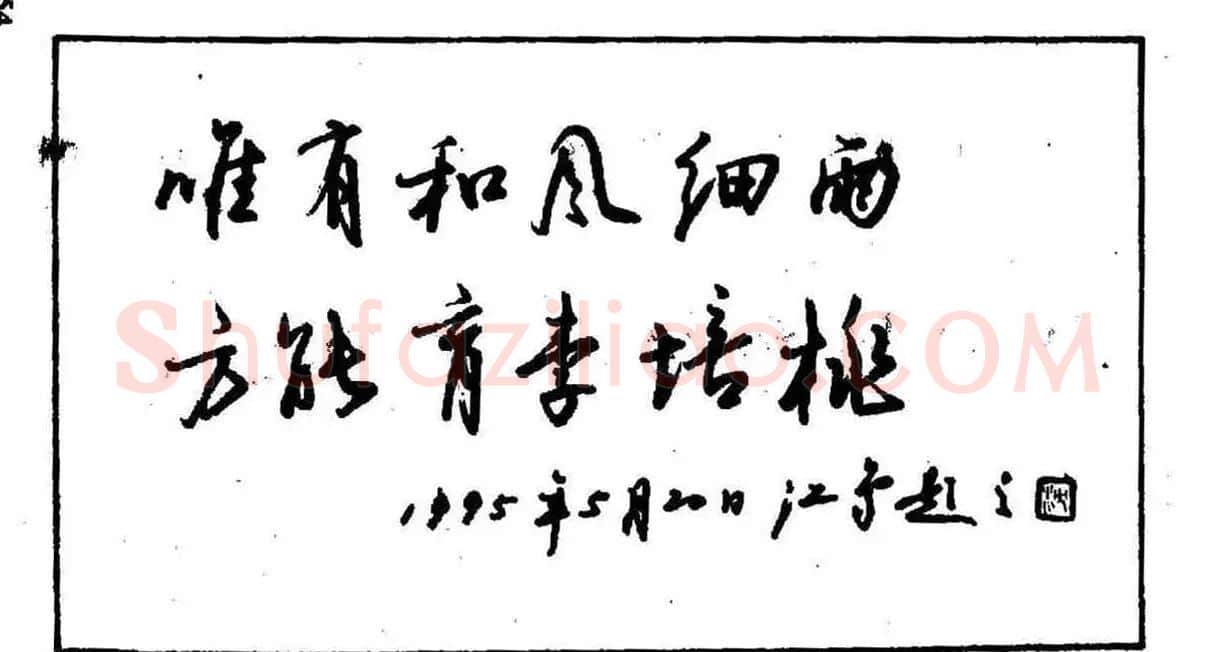 唯有和风细雨
方能育李培桃
1995年5月20日 江雪题
Shufaziliao.COM